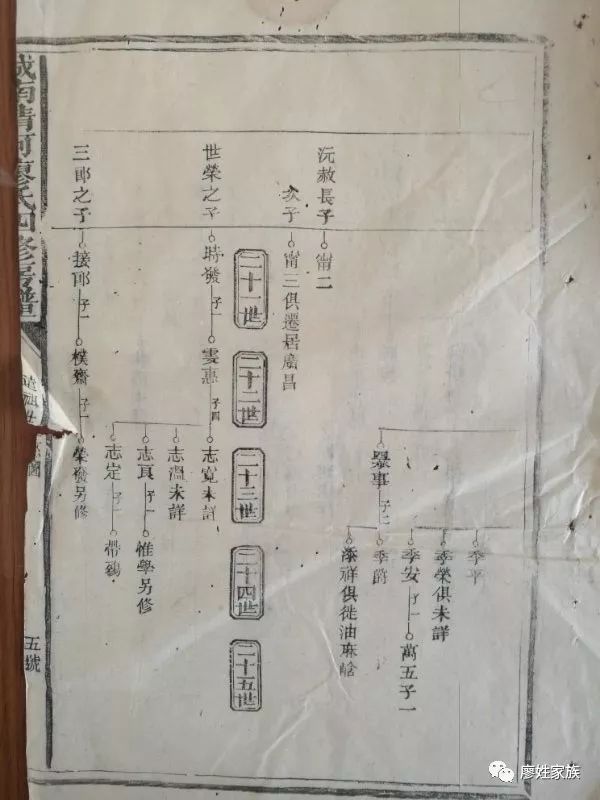 沅赦長子
甯二
次子
甯三俱遷居廣昌
子二
季平
季榮俱未詳
季安
子一
萬五子一
季爵
添祥俱徙油麻
二十一世
二十二世
二十三世
二十四世
二十五世
世榮之子
時發
子一
雯惠
子四
志寬未詳
志溫未詳
志良
子一
惟學另修
志定
子一
三郎之子
接郎
子一
樸齋
子一
榮發另修
城南清河廖氏四修房譜
五號
廖姓家族